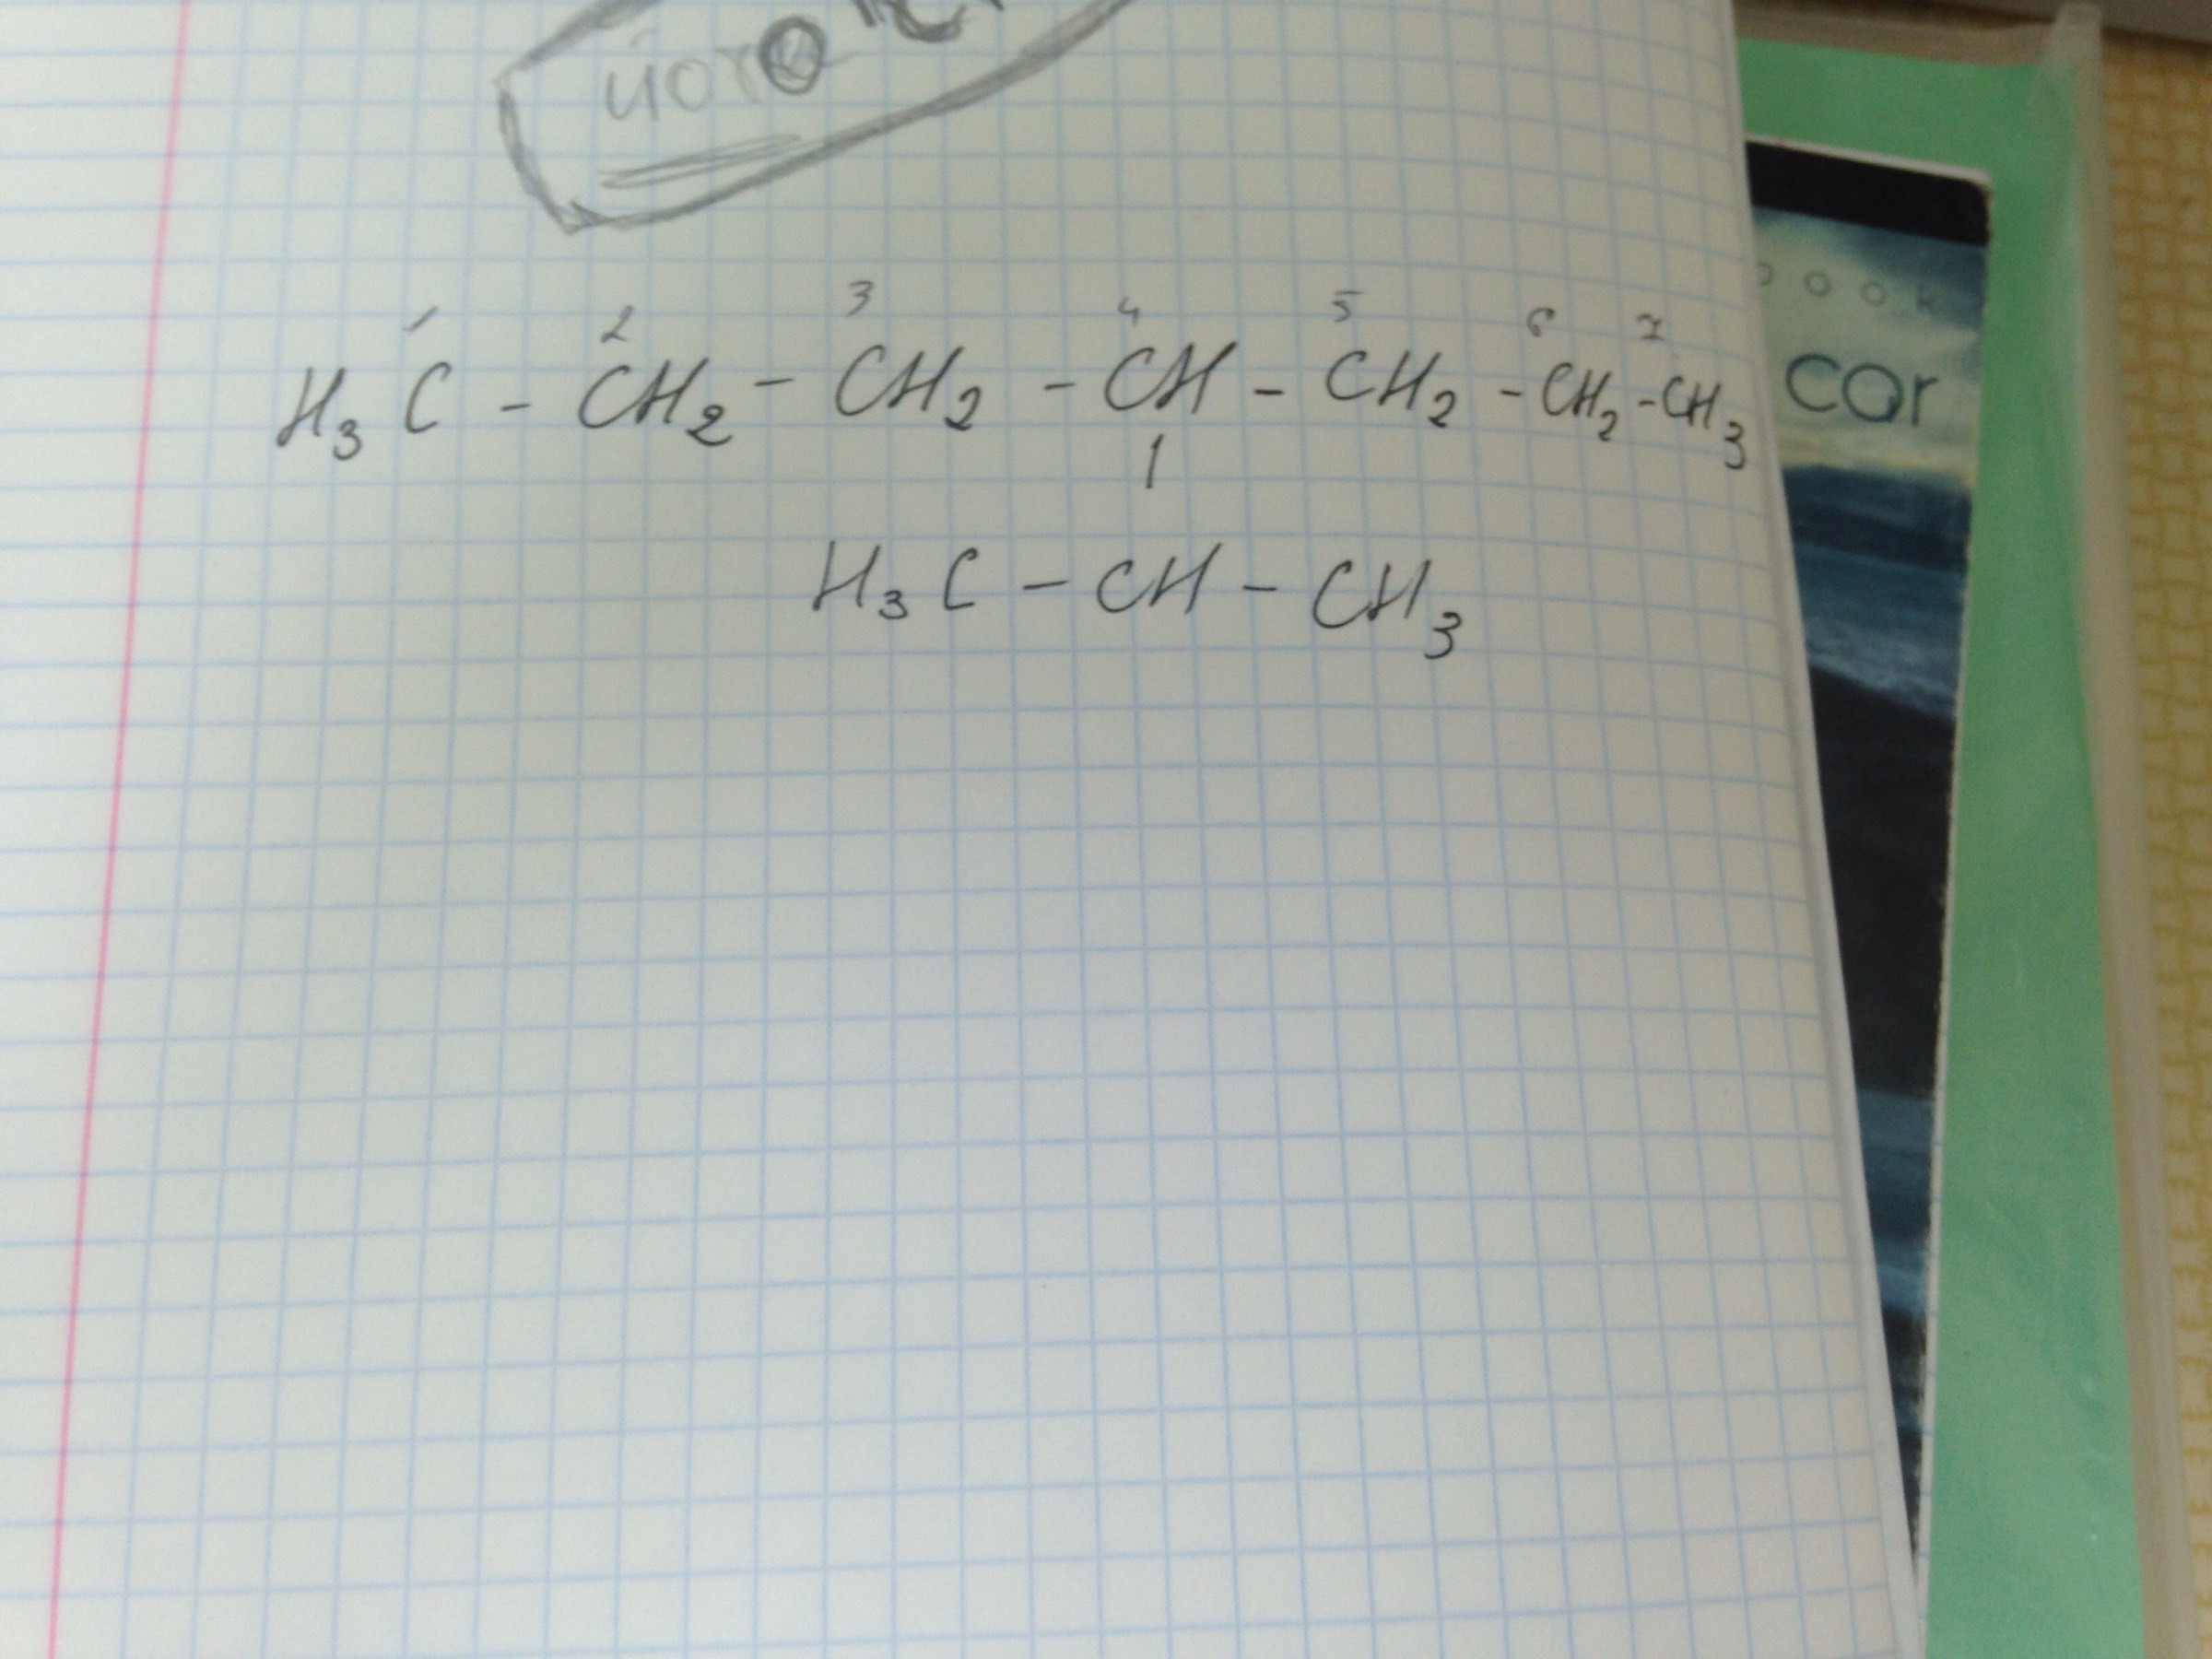 1 2 3 4 5 6 7
H₃C - CH₂ - CH₂ - CH - CH₂ - CH₂ - CH₃
|
H₃C - CH - CH₃
book
car